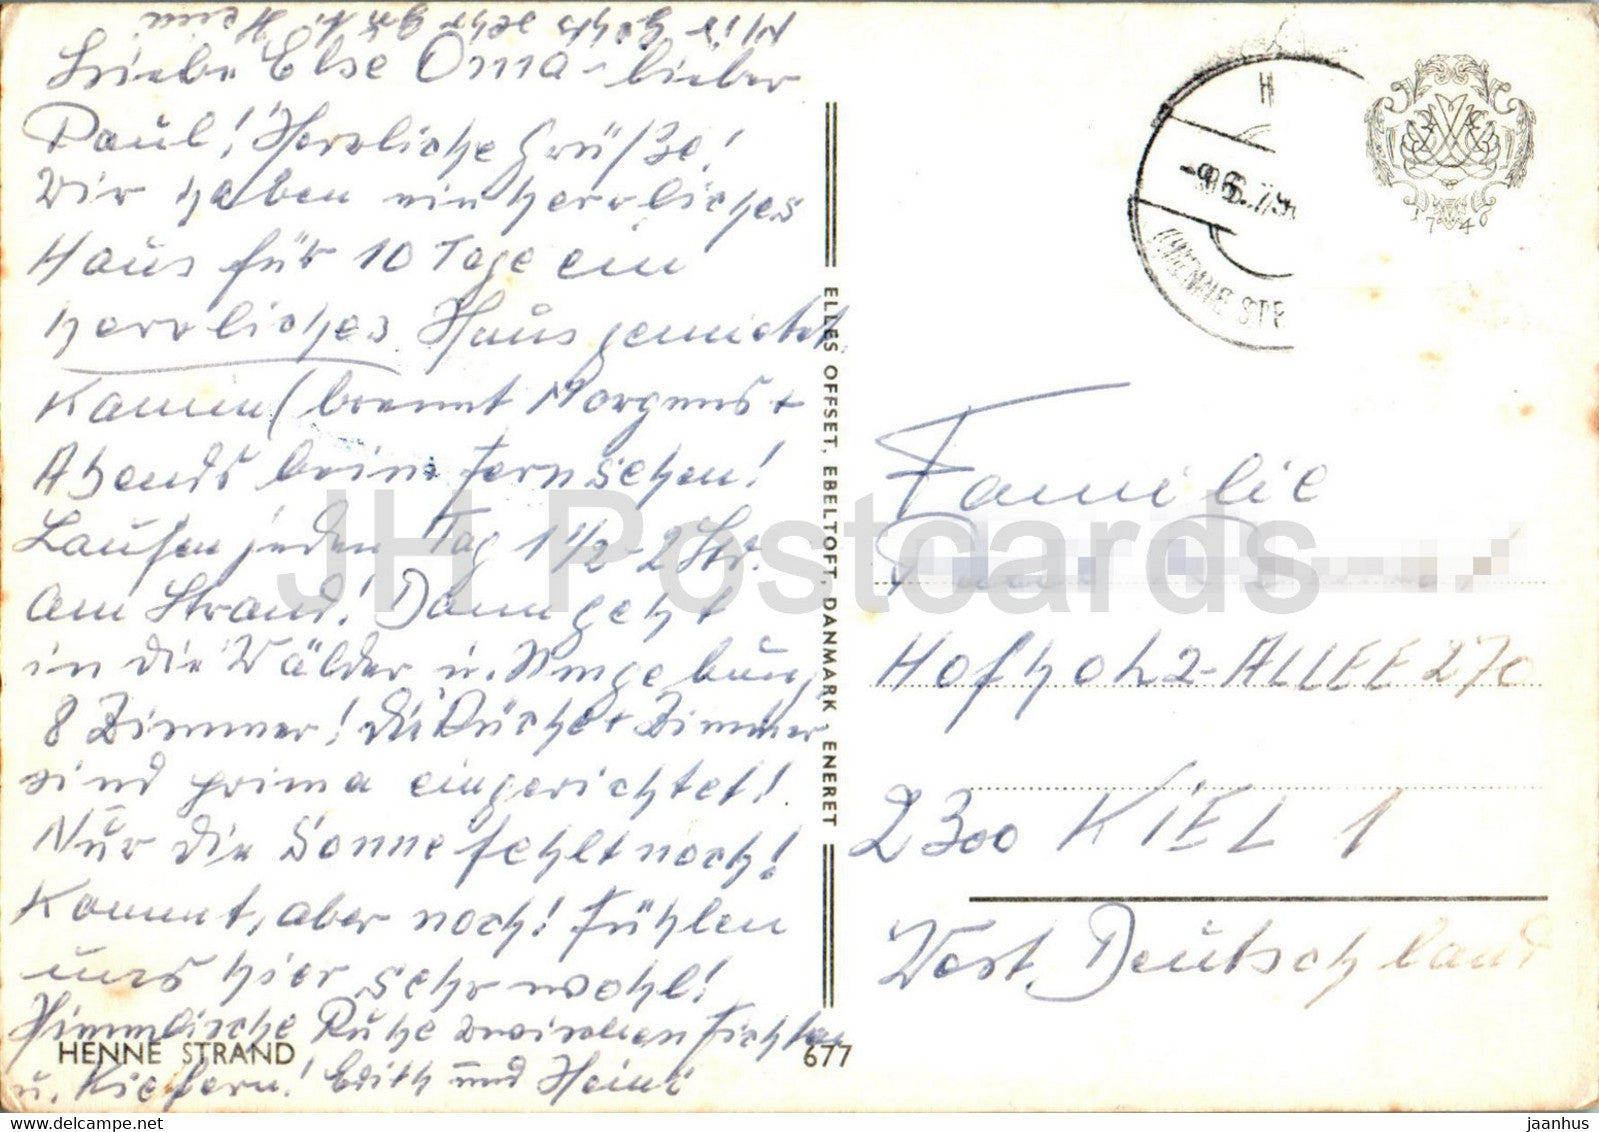 Mir geht's sehr gut! Heini
Liebe Else Oma - lieber
Paul! Herrliche Grüße!
Wir haben ein herrliches
Haus für 10 Tage ein
herrliches Haus gemietet
Kamin (brennt Morgens +
Abends beim Fernsehen!
Laufen jeden Tag 1 1/2 - 2 Std.
am Strand! Dann geht
in die Wälder u. Umgebung
8 Zimmer! Die Küche + Zimmer
sind prima eingerichtet!
Nur die Sonne fehlt noch!
Kommt, aber noch! Fühlen
uns hier sehr wohl!
Himmlische Ruhe zwischen Fichten
u. Kiefern! Edith und Heini
HENNE STRAND
677
ELLES OFFSET, EBELTOFT, DANMARK - ENERET
-9.6.75
HENNE STR
1746
Familie
Hofholz-ALLEE 270
2300 KIEL 1
West. Deutschland
JH Postcards
www.delcampe.net
jaanhus